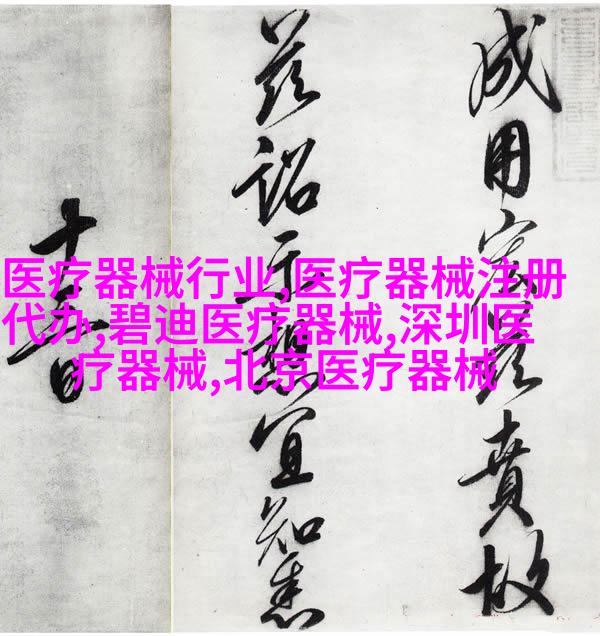 医疗器械行业,医疗器械注册
代办,碧迪医疗器械,深圳医
疗器械,北京医疗器械
成用賁故
茲詔示想宜知悉
十五日